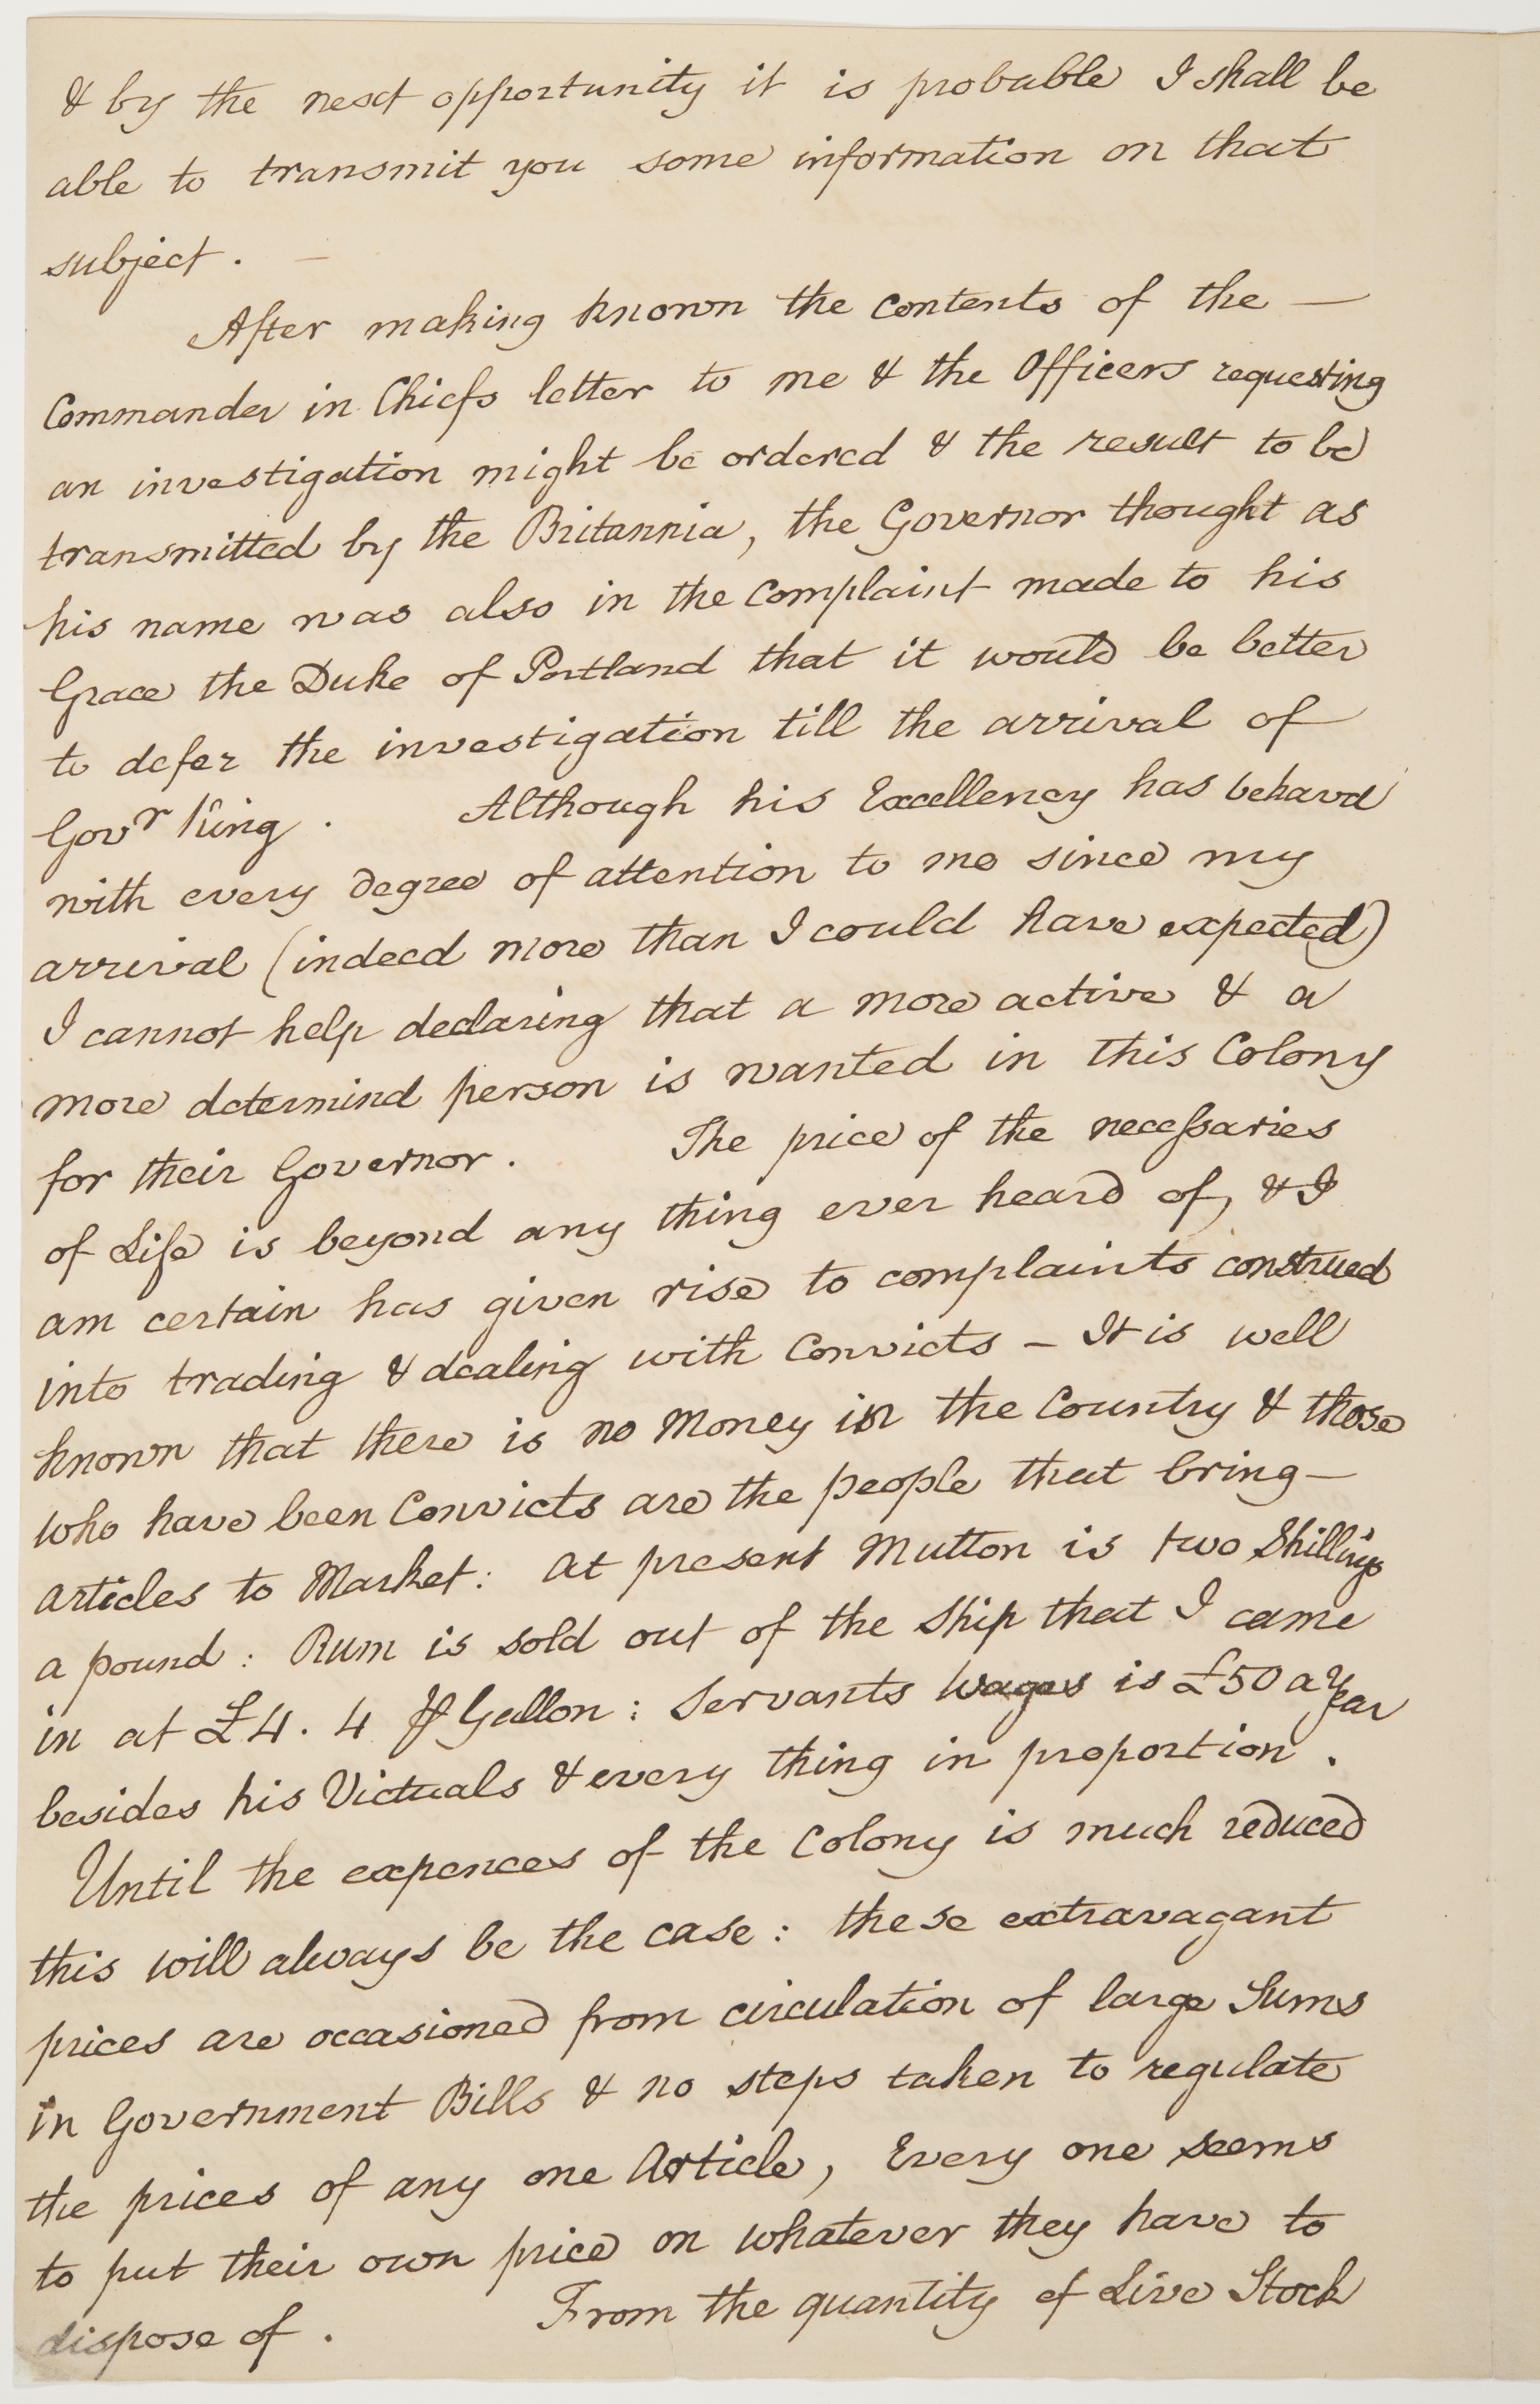 & by the next opportunity it is probable I shall be
able to transmit you some information on that
subject. —
After making known the contents of the —
Commander in Chiefs letter to me & the Officers requesting
an investigation might be ordered & the result to be
transmitted by the Britannia, the Governor thought as
his name was also in the Complaint made to his
Grace the Duke of Portland that it would be better
to defer the investigation till the arrival of
Govr King. Although his Excellency has behavd
with every degree of attention to me since my
arrival (indeed more than I could have expected)
I cannot help declaring that a more active & a
more determind person is wanted in this Colony
for their Governor. The price of the necessaries
of Life is beyond any thing ever heard of, & I
am certain has given rise to complaints construed
into trading & dealing with Convicts – It is well
known that there is no Money in the Country & those
who have been Convicts are the people that bring —
articles to Market: at present Mutton is two Shillings
a pound: Rum is sold out of the Ship that I came
in at £4. 4 ⅌ Gallon: Servants Wages is £50 a Year
besides his Victuals & every thing in proportion.
Until the expences of the Colony is much reduced
this will always be the case: these extravagant
prices are occasioned from circulation of large Sums
in Government Bills & no steps taken to regulate
the prices of any one Article, Every one seems
to put their own price on whatever they have to
dispose of. From the quantity of Live Stock